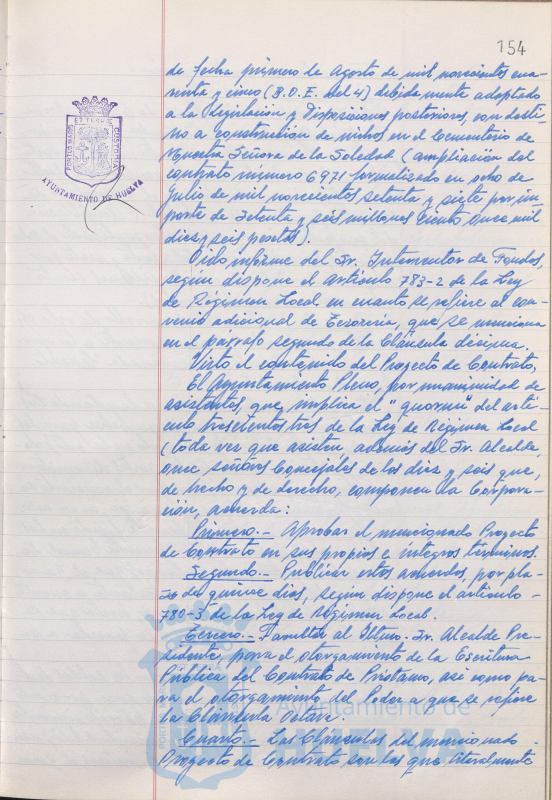 154
de fecha primero de Agosto de mil novecientos cua-
renta y cinco (B.O.E. del 4) debidamente adaptado
a la legislación y Disposiciones posteriores, con desti-
no a construcción de nichos en el Cementerio de
Nuestra Señora de la Soledad (ampliación del
contrato número 6971 formalizado en ocho de
Julio de mil novecientos setenta y siete por im-
porte de setenta y seis millones ciento once mil
diez y seis pesetas).
Oído informe del Sr. Interventor de Fondos,
según dispone el artículo 783-2 de la Ley
de Régimen Local en cuanto se refiere al con-
venio adicional de Tesorería, que se menciona
en el párrafo segundo de la Cláusula décima.
Visto el contenido del Proyecto de Contrato,
El Ayuntamiento Pleno, por unanimidad de
asistentes, que implica el "quorum" del artí-
culo trescientos tres de la Ley de Régimen Local
(toda vez que asisten, además del Sr. Alcalde,
once señores Concejales de los diez y seis que,
de hecho y de derecho, componen la Corpora-
ción, acuerda:
Primero.- Aprobar el mencionado Proyecto
de Contrato en sus propios e íntegros términos.
Segundo.- Publicar estos acuerdos, por pla-
zo de quince días, según dispone el artículo -
780-3 de la Ley de Régimen Local.
Tercero.- Facultar al Iltmo. Sr. Alcalde Pre-
sidente, para el otorgamiento de la Escritura
Pública del Contrato de Préstamo, así como pa-
ra el otorgamiento del Poder a que se refiere
la Cláusula Octava.
Cuarto.- Las Cláusulas del mencionado
Proyecto de Contrato son las que literalmente
PORTUS MARIS ET TERRAE CUSTODIA
AYUNTAMIENTO DE HUELVA
Ayuntamiento de
HUELVA